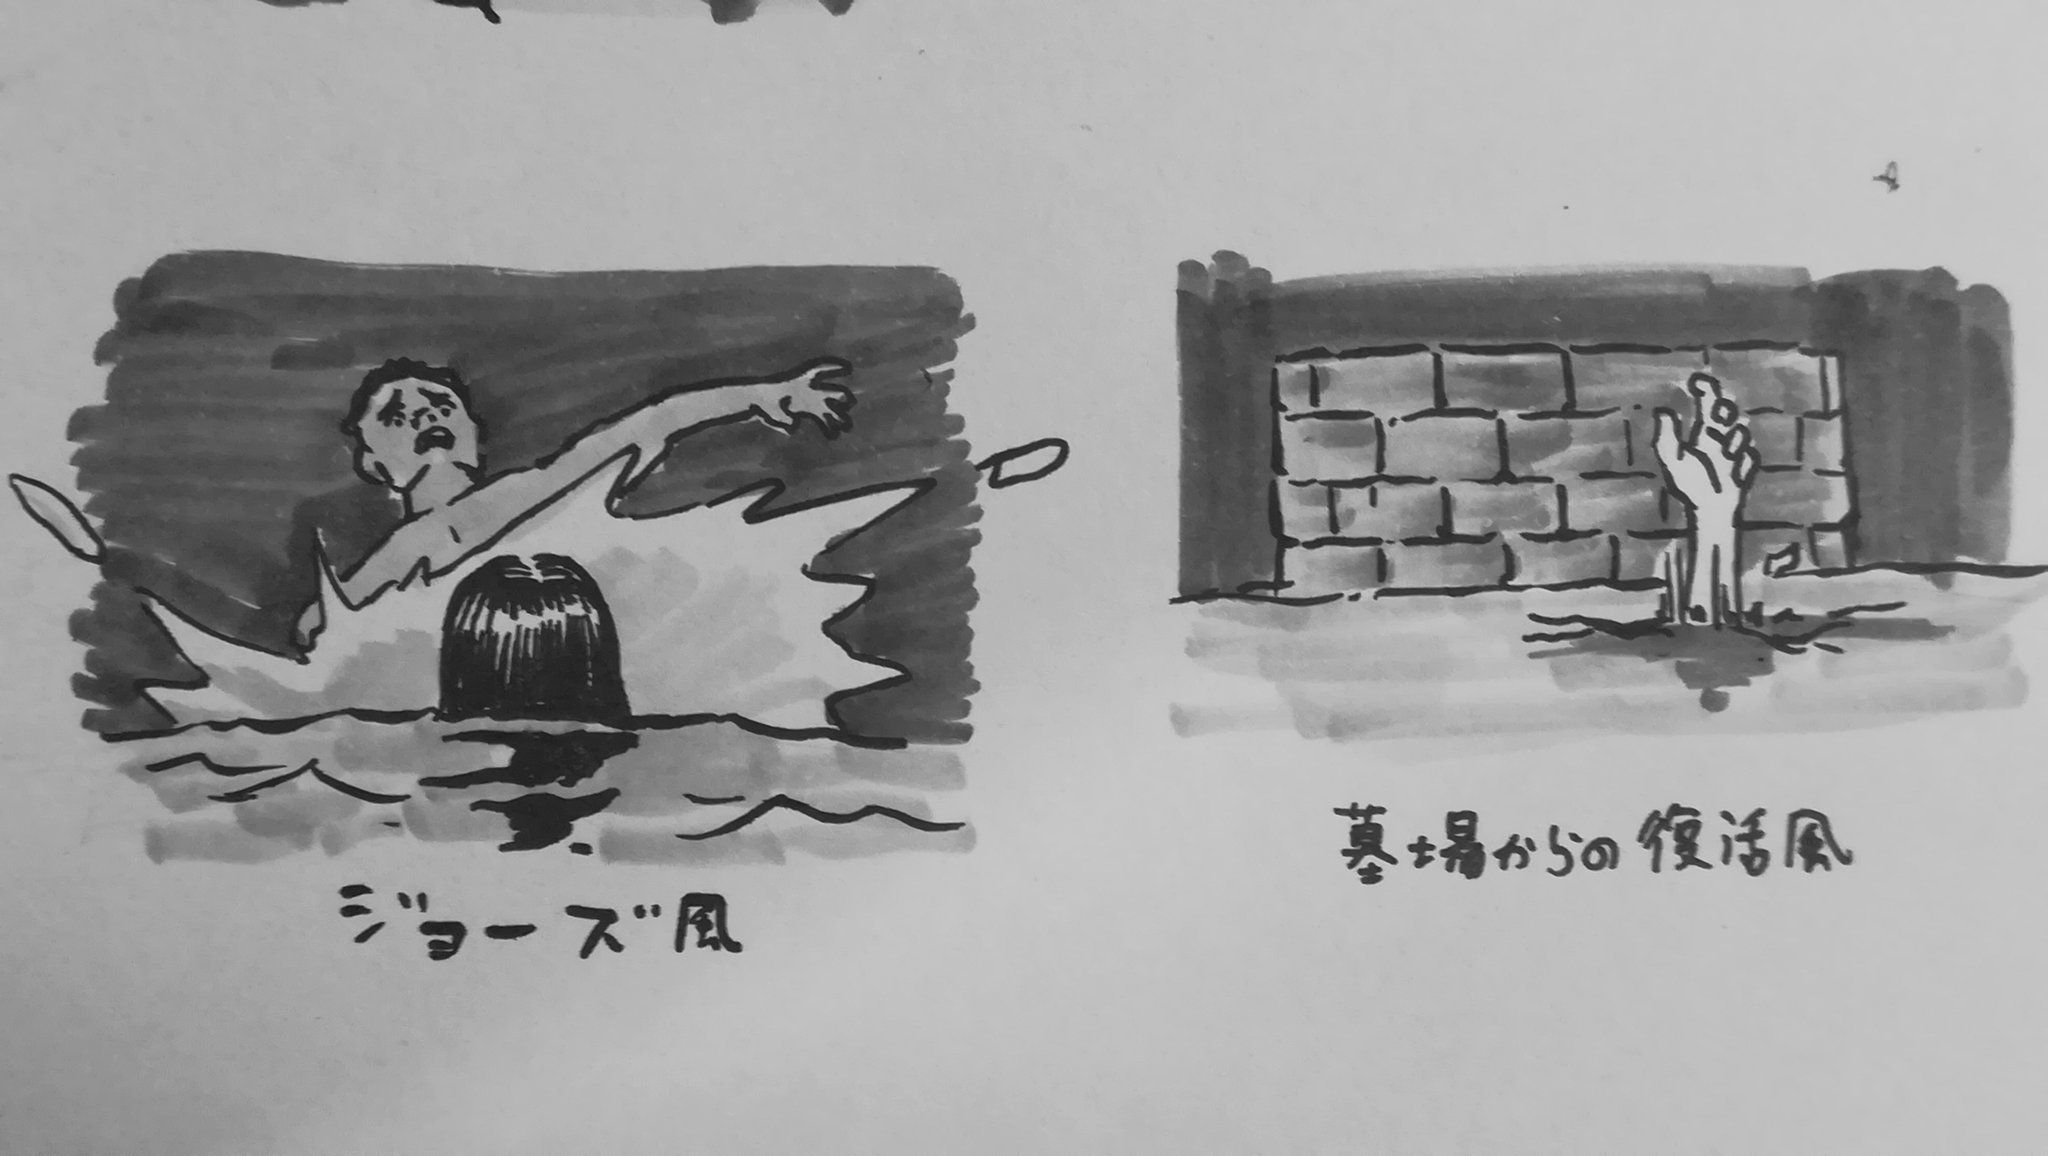 ジョーズ風
墓場からの復活風